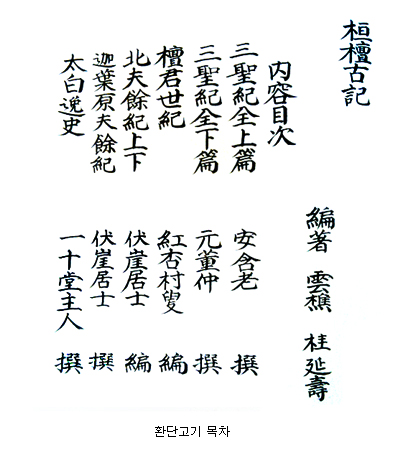 桓檀古記
編著 雲樵 桂延壽
內容目次
三聖紀全上篇 安含老 撰
三聖紀全下篇 元董仲 撰
檀君世紀 紅杏村叟 編
北夫餘紀上下 伏崖居士 編
迦葉原夫餘紀 伏崖居士 撰
太白逸史 一十堂主人 撰
환단고기 목차